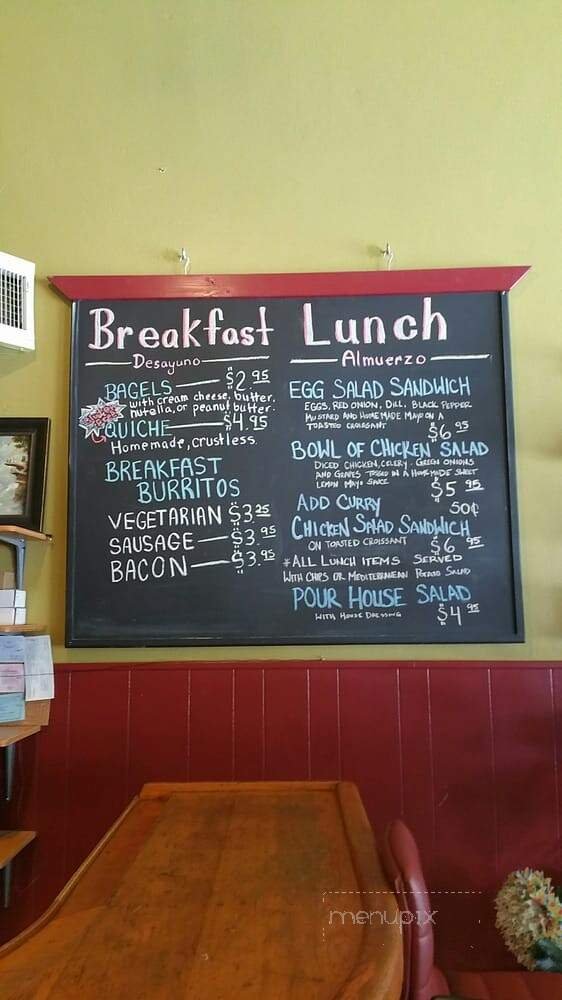 Breakfast
Desayuno
BAGELS $2.95
with cream cheese, butter,
nutella, or peanut butter.
QUICHE $4.95
Homemade, crustless
BREAKFAST
BURRITOS
VEGETARIAN $3.25
SAUSAGE $3.95
BACON $3.95
Lunch
Almuerzo
EGG SALAD SANDWICH
EGGS, RED ONION, DILL, BLACK PEPPER
MUSTARD AND HOMEMADE MAYO ON A
TOASTED CROISSANT
$6.95
BOWL OF CHICKEN SALAD
DICED CHICKEN, CELERY, GREEN ONIONS
AND GRAPES TOSSED IN A HOMEMADE SWEET
LEMON MAYO SAUCE
$5.95
ADD CURRY 50¢
CHICKEN SALAD SANDWICH
ON TOASTED CROISSANT $6.95
*ALL LUNCH ITEMS SERVED
WITH CHIPS OR MEDITERRANEAN POTATO SALAD
POUR HOUSE SALAD
WITH HOUSE DRESSING $4.95
menupix